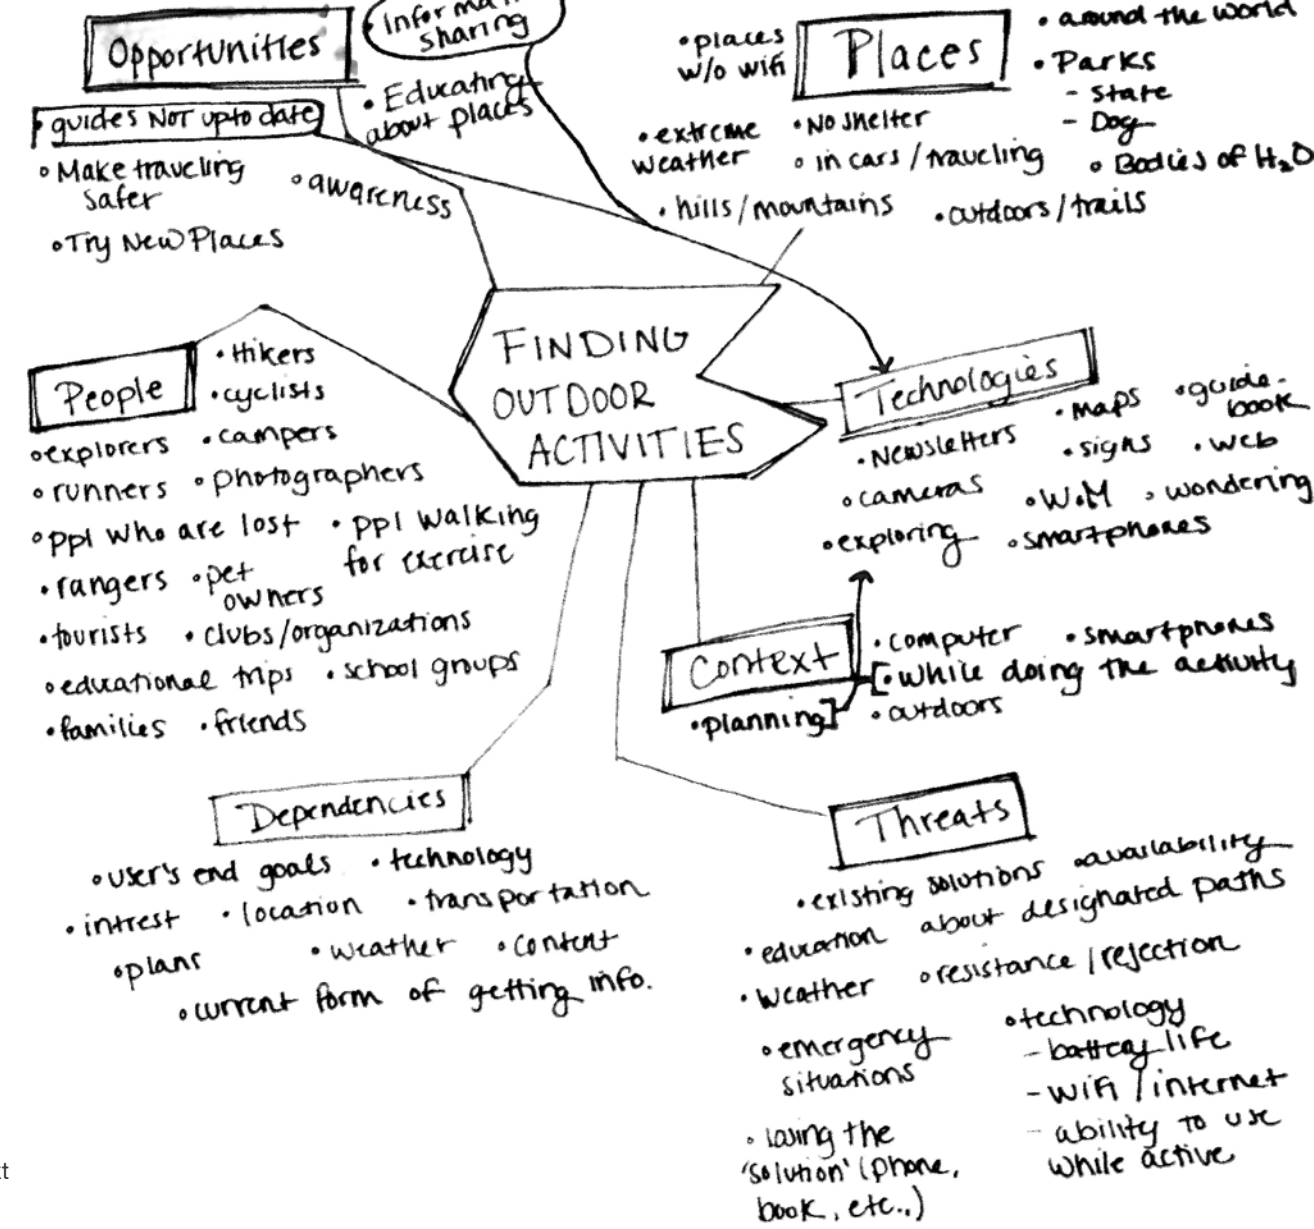 Opportunities
sharing
• Educating
about places
guides NOT up to date
• Make traveling
safer
• awareness
• Try New Places
Places
• places
w/o wifi
• around the world
• Parks
- State
- Dog
• extreme
weather
• No shelter
• in cars / traveling
• Bodies of H2O
• hills/mountains
• outdoors/trails
FINDING
OUTDOOR
ACTIVITIES
People
• Hikers
• cyclists
• explorers
• campers
• runners
• photographers
• ppl who are lost
• ppl walking
for exercise
• rangers
• pet
owners
• tourists
• clubs/organizations
• educational trips
• school groups
• families
• friends
Technologies
• maps
• guide-
book
• Newsletters
• signs
• web
• cameras
• W.M
• wondering
• exploring
• smartphones
Context
• computer
• smartphones
[• while doing the activity
• planning]
• outdoors
Dependencies
• user's end goals
• technology
• intrest
• location
• transportation
• plans
• weather
• content
• current form of getting info.
Threats
• existing solutions
• availability
• education about designated paths
• weather
• resistance / rejection
• emergency
situations
• technology
- battery life
- wifi / internet
- ability to use
while active
• losing the
'solution' (phone,
book, etc..,)